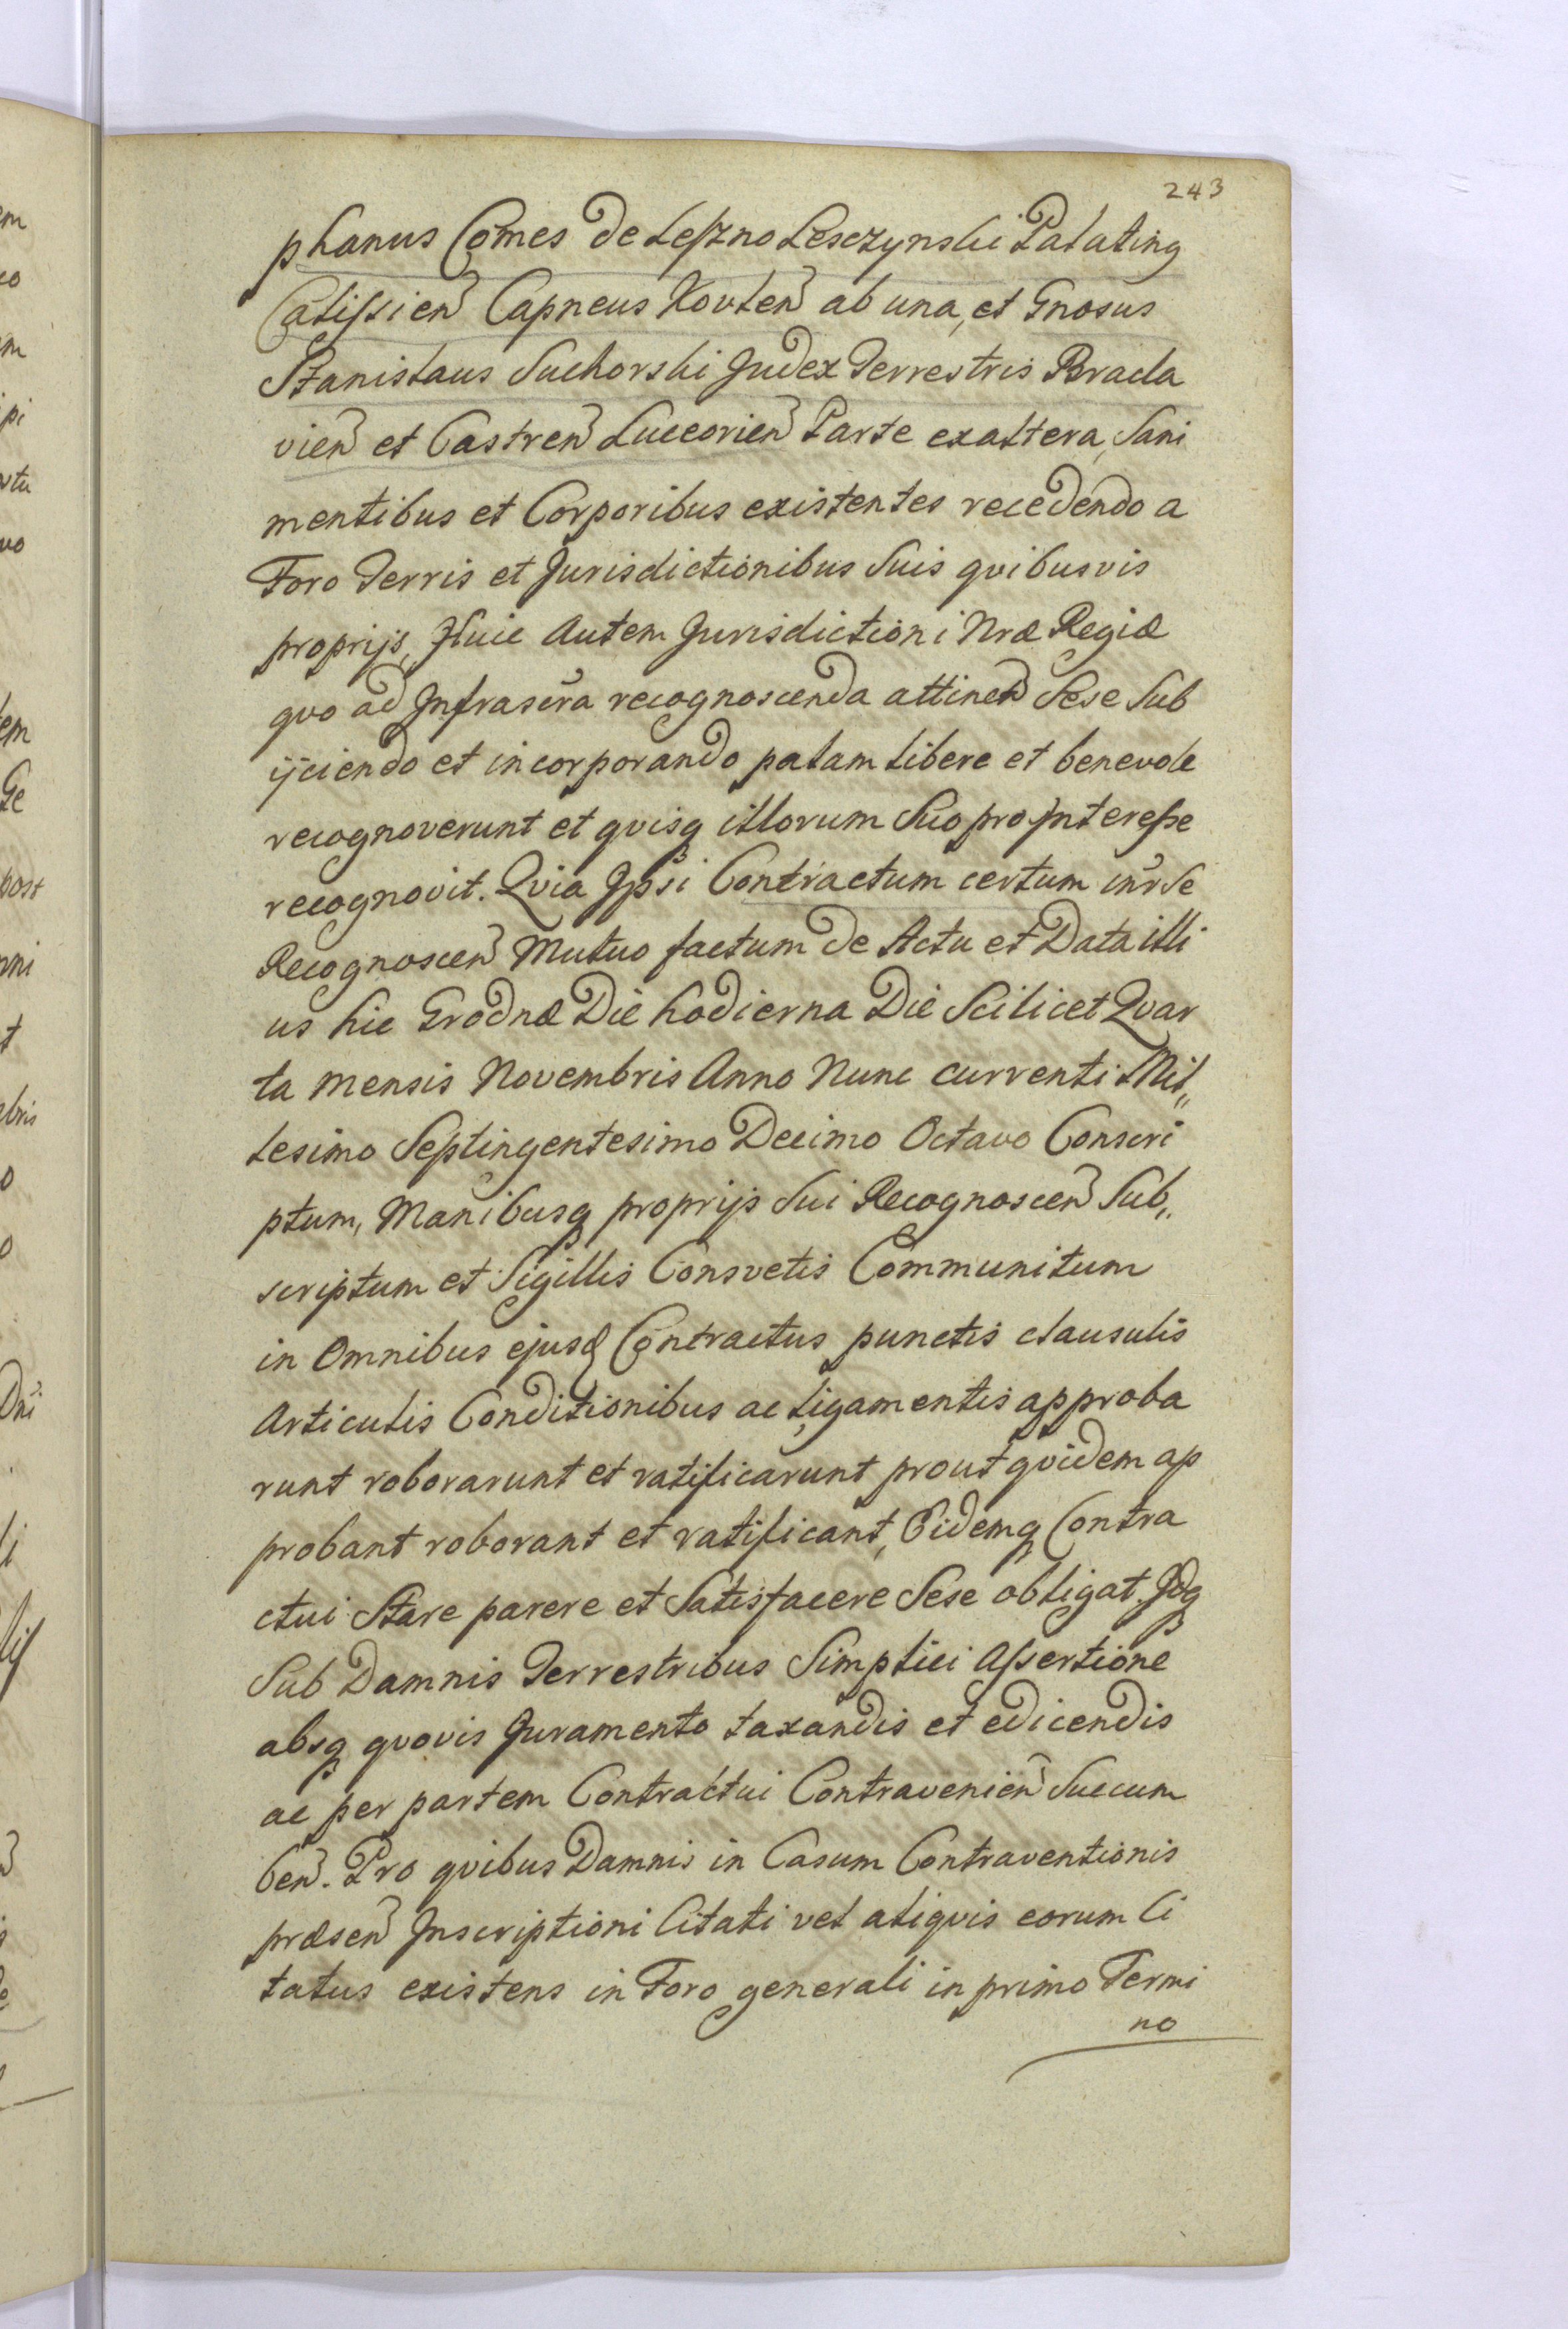 243
phanus Comes de Leszno Lesczynski Palatinq
Calissien Capneus Kovlen ab una, et Gnosus
Stanislaus Suchorski Judex Terrestris Bracla
vien et Castren Luceorien Parte ex altera, Sani
mentibus et Corporibus existentes recedendo a
Foro Terris et Jurisdictionibus Suis qvibusvis
proprijs, Huic Autem Jurisdictioni Nræ Regiæ
qvo ad Infrascra recognoscenda attinen Sese Sub
ijciendo et incorporando palam libere et benevole
recognoverunt et qvisq illorum Suo pro Interesse
recognovit. Qvia Ipsi Contractum certum inr Se
Recognoscen Mutuo factum de Actu et Data illi
us hic Grodnæ Die hodierna Die Scilicet Qvar
ta mensis Novembris Anno Nunc currenti Mil„
lesimo Septingentesimo Decimo Octavo Conscri
ptum, Manibusq proprijs Sui Recognoscen Sub„
scriptum et Sigillis Consvetis Communitum
in Omnibus ejusd Contractus punctis clausulis
Articulis Conditionibus ac ligamentis approba
runt roborarunt et ratificarunt prout qvidem ap
probant roborant et ratificant, Eidemq Contra
ctui Stare parere et Satisfacere Sese obligat. Idq
Sub Damnis Terrestribus Simplici Assertione
absq qvovis Juramento taxandis et edicendis
ac per partem Contractui Contravenien Succum
ben. Pro qvibus Damnis in Casum Contraventionis
præsen Inscriptioni Citati vel aliqvis eorum Ci
tatus existens in Foro generali in primo Termi
no